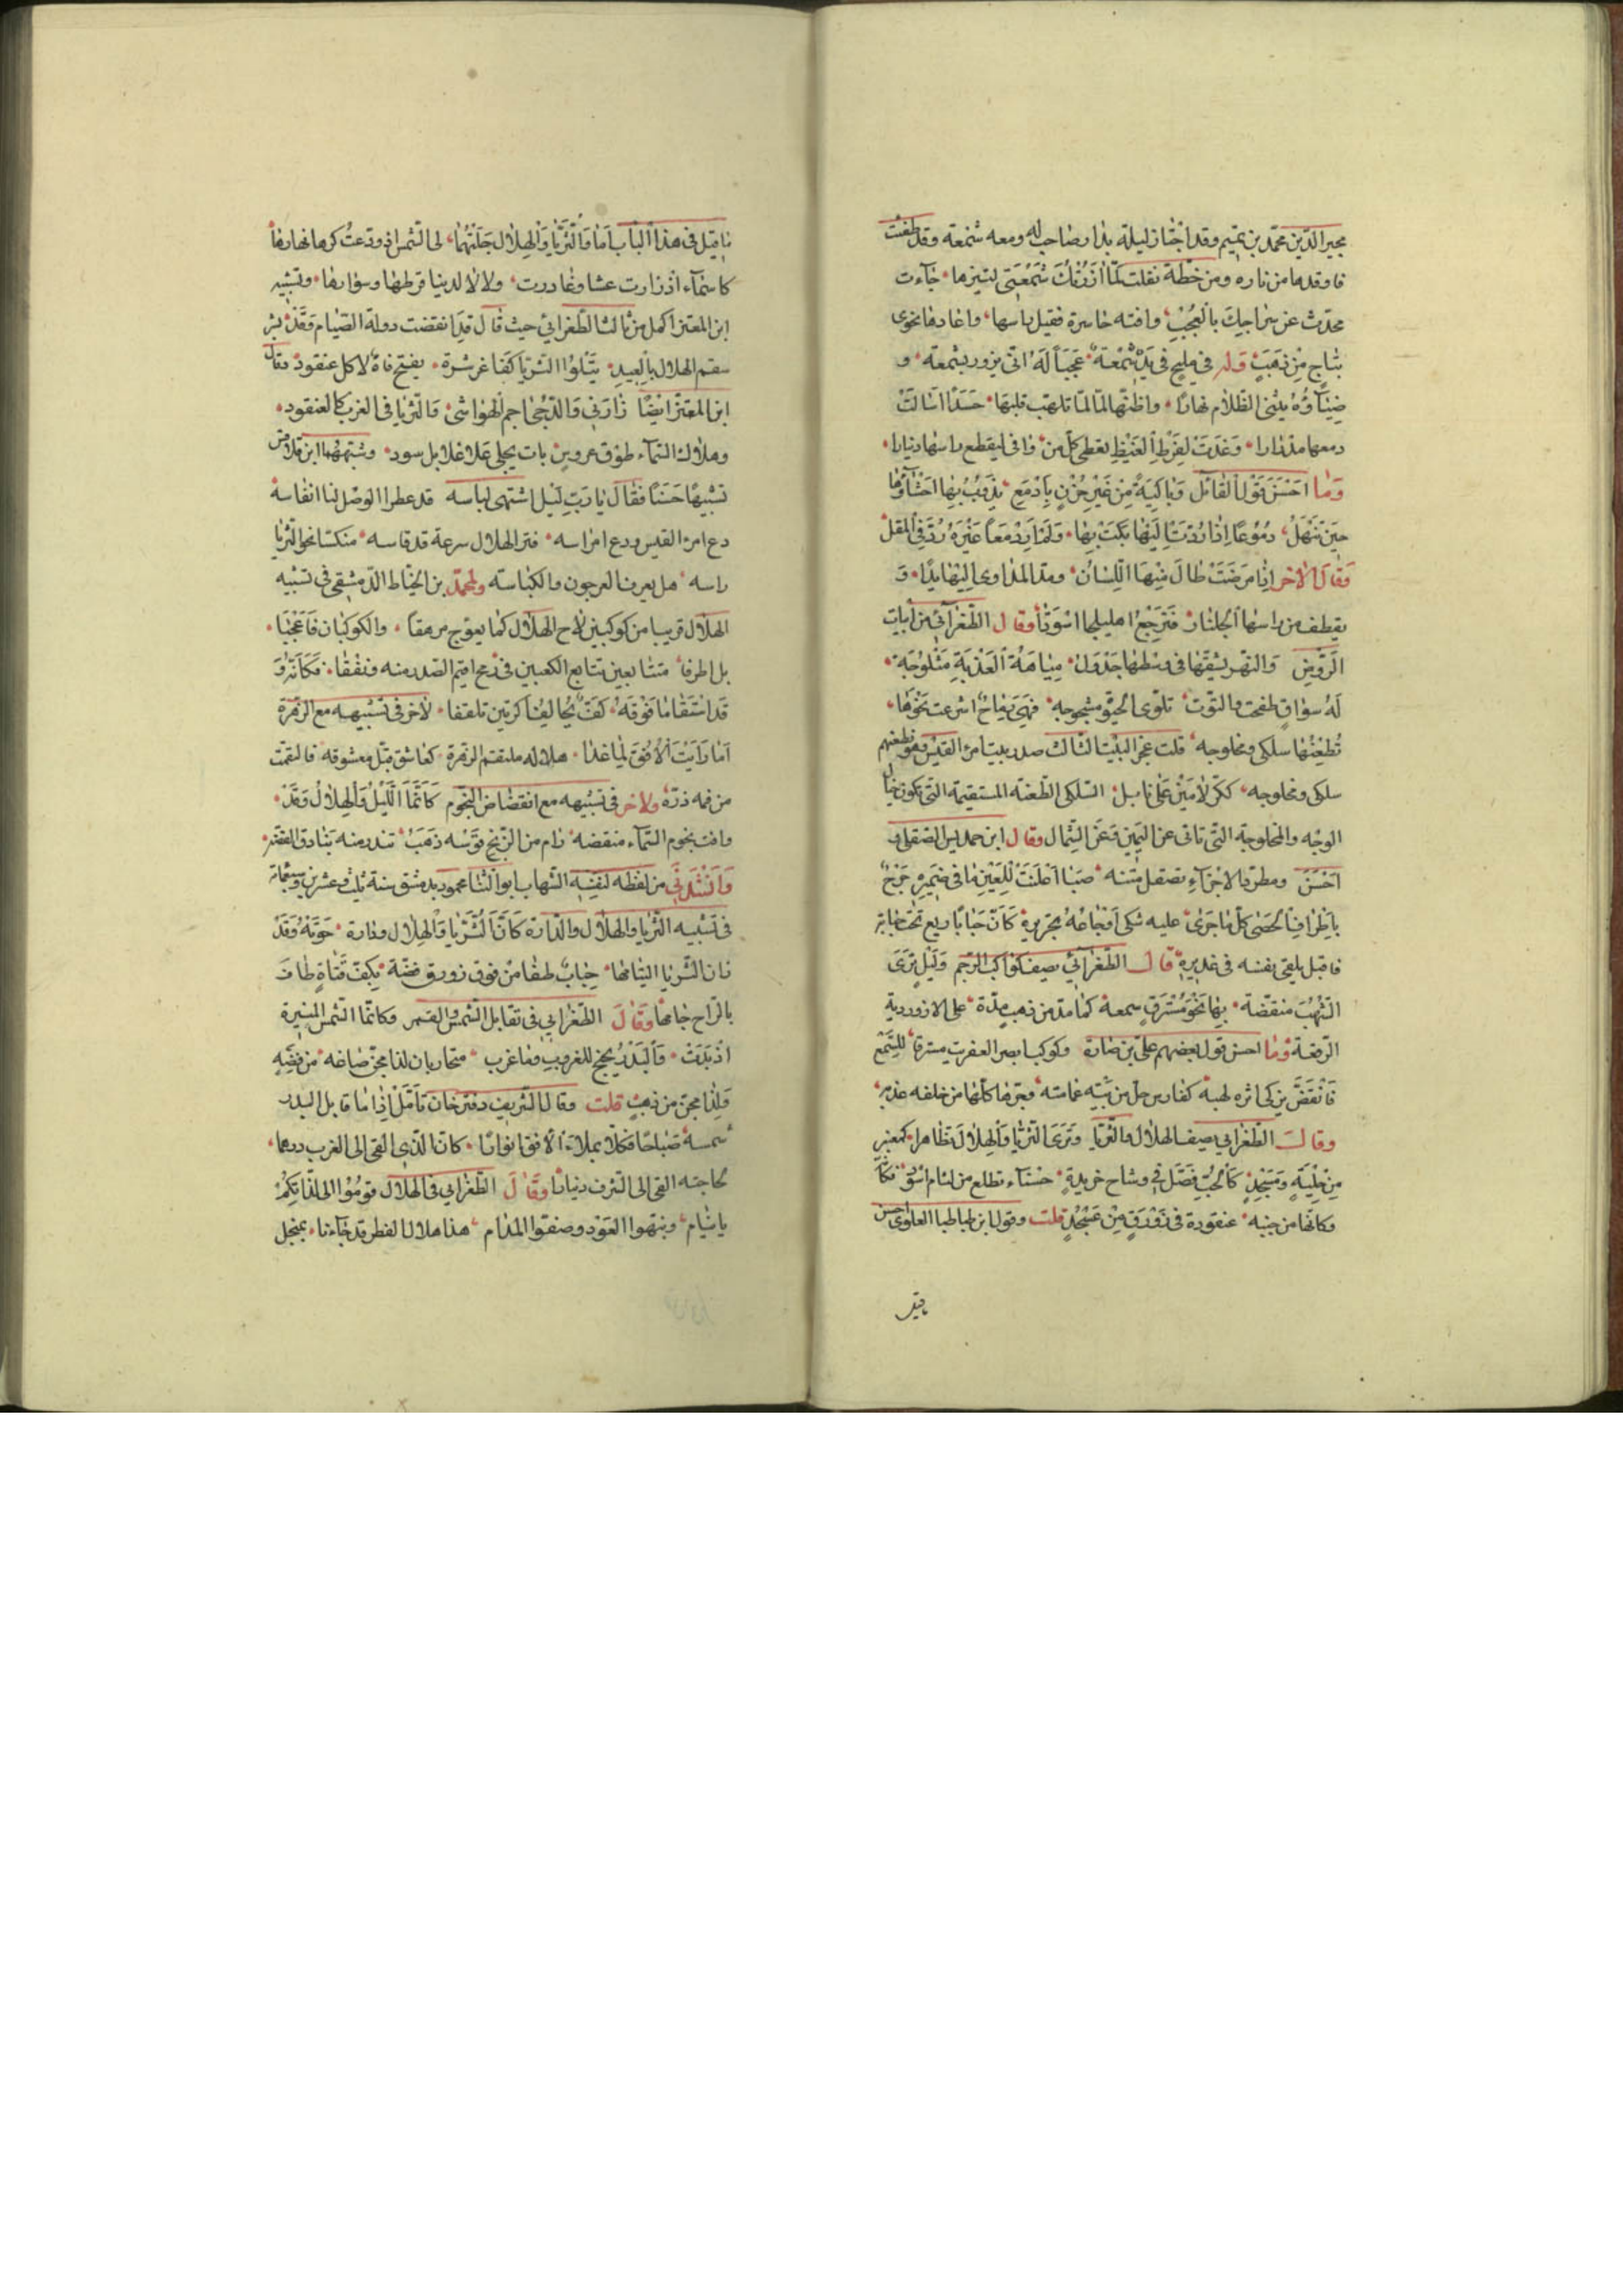 مجير الدّين محمّد بن تميم وقد اجتاز ليلة بدار صاحب له ومعه شمعة وقد طفئت
فاوقدها من ناره ومن خطّه نقلت لمّا ازرتك شمعتي لتنيرها جاءت
تحدّث عن سراجك بالعجب وافته حاسرة فقبل راسها واعادها نحوى
بتاج من ذهب وله في مليح في يده شمعة عجبا له انّى يزور بشمعة و
ضياؤه يثنى الظلام نهارا واظنّها لمّا تلهب قلبها حسدا اسالت
دمعها مدرارا وغدت لفرط الغيظ يعطى كلّ من وافى ليقطع راسها دينارا
وما احسن قول القائل وباكية من غير حزن بادمع يذوب بها احشاؤها
حين تنهل دموعا اذا ردّت اليها بكت بها ولم ار دمعا غيره ردّ في المقل
وقال الاخر اذا مرضت طال فيها اللسان ومدّ المداوى اليها يدا و
يقطف من راسها الجلنار فترجع اهليلجا اسودا وقال الطّغرائي من ابيات
الرّوض والنهر يشقّها في وسطها جدول مياهه العذبة مثلوجة
له سواق طفحت والتوت تلوّى الحيّة مشجوجة فهى رماح اشرعت نحوها
تطعنها سلكى ومخلوجه قلت عجز البيت الثالث صدر بيت امرء القيس وهو نطعنهم
سلكى ومخلوجه ككرّ لأمين على نابل السّلكى الطّعنه المستقيمة التى تكون حيال
الوجه والمخلوجة التى تاتى عن اليمين وعن الشمال وقال ابن حمديس الصّقلى و
احسن ومطرد الاجزاء تصقل متنه صبا اعلنت للعين ما في ضميره جريح
باطراف الحصى كلّ ما جرى عليه شكى اوجاعه بخريره كانّ حبابا ريع تحت حبابه
فاقبل يلقى نفسه في غديره قال الطّغرائي يصف كواكب الرّجم وليل ترى
الشّهب منقضّة بها نحو مسترق سمعه كما مدّ من ذهب مدّة على لازوردية
الرّقعة وما احسن قول بعضهم علىّ بن صارة وكوكب ابصر العفريت مسترقا للسّمع
فانقضّ يزكى اثره لهبه كفارس حلّ من تيه عمامته وجرّها كلّها من خلفه عذبه
وقال الطّغرائي يصف الهلال والثّريّا وترى الثريّا والهلال تظاهرا كمعنبر
من حلية ومسجد كالحبّ فصّل في وشاح خريدة حسناء تطلع من لثام اسود فكانّه
وكانّها من جنبه عنقودة في زورق من عسجد قلت وقول ابن طباطبا العلوى احسن
ماقيل
ما قيل في هذا الباب اما والثّريّا والهلال جلتهما لى الشّمس اذ ودّعت كرها نهارها
كاسماء اذ زارت عشا وغادرت دلالا لدينا قرطها وسوارها وتشبيه
ابن المعتز اكمل من ثالث الطّغرائي حيث قال قد انقضت دولة الصّيام وقد بشر
سقم الهلال بالعيد يتلوا الثريّا كفاغر شره يفتح فاه لاكل عنقود وقال
ابن المعتزّ ايضا زارنى والدّجى احمّ الحواشى والثريا في الغرب كالعنقود
وهلال السّماء طوق عروس بات يجلى على غلايل سود وشبّههما ابن قلاقس
تشبيها حسنا فقال يا ربّ ليل اشتهى لباسه قد عطر الوصل لنا انفاسه
دع امرء القيس ودع امراسه فترى الهلال سرعة قد قاسه منكسا نحو الثّريا
راسه هل يعرف العرجون والكباسه ولمحمّد بن الخيّاط الدّمشقى في تشبيه
الهلال قريبا من كوكبين لاح الهلال كما يعوّج مرهقا والكوكبان فاعجبا
بل اطرفا متتابعين تتابع الكعبين في رمح اقيم الصّدر منه وثقّفا فكانّه و
قد استقاما فوقه كفّ يخالف اكرتين تلقفا لآخر في تشبيهه مع الزهرة
اما رايت الافق لمّا غدا هلاله ملتقم الزهرة كعاشق قبّل معشوقه فالتقمت
من فمه درّة ولاخر في تشبيهه مع انقضاض النجوم كانّما اللّيل والهلال وقد
وافت نجوم السّماء منقضه رام من الزّنج قوسه ذهب تندر منه بنادق الفضّه
وانشدنى من لفظه لنفسه الشهاب ابو الثّنا محمود بدمشق سنة ثلث وعشرين وسبعمائة
في تشبيه الثّريا والهلال والدّارة كانّ الثّريّا والهلال ودارة حوته وقد
زان الثّريا التئامها حباب طفا من فوق زورق فضّة بكفّ فتاة طاف
بالرّاح جامها وقال الطّغرائي في تقابل الشّمس والقمر وكانّما الشّمس المنيرة
اذ بدت والبدر يجنح للغروب وما غرب متحاربان لذا مجنّ صاغه من فضّه
ولذا مجنّ من ذهب قلت وقال الشّريف دفتر خان تامّل اذا ما قابل البدر
شمسه صباحا فكلّا يملاء الأفق انوارا كانّ الّذى القى الى الغرب درهما
لحاجته القى الى الشرق دينارا وقال الطّغرائي في الهلال قوموا الى لذّاتكم
يا نيام ونبّهوا العود وصفّوا المدام هذا هلال الفطر قد جاءنا بمنجل